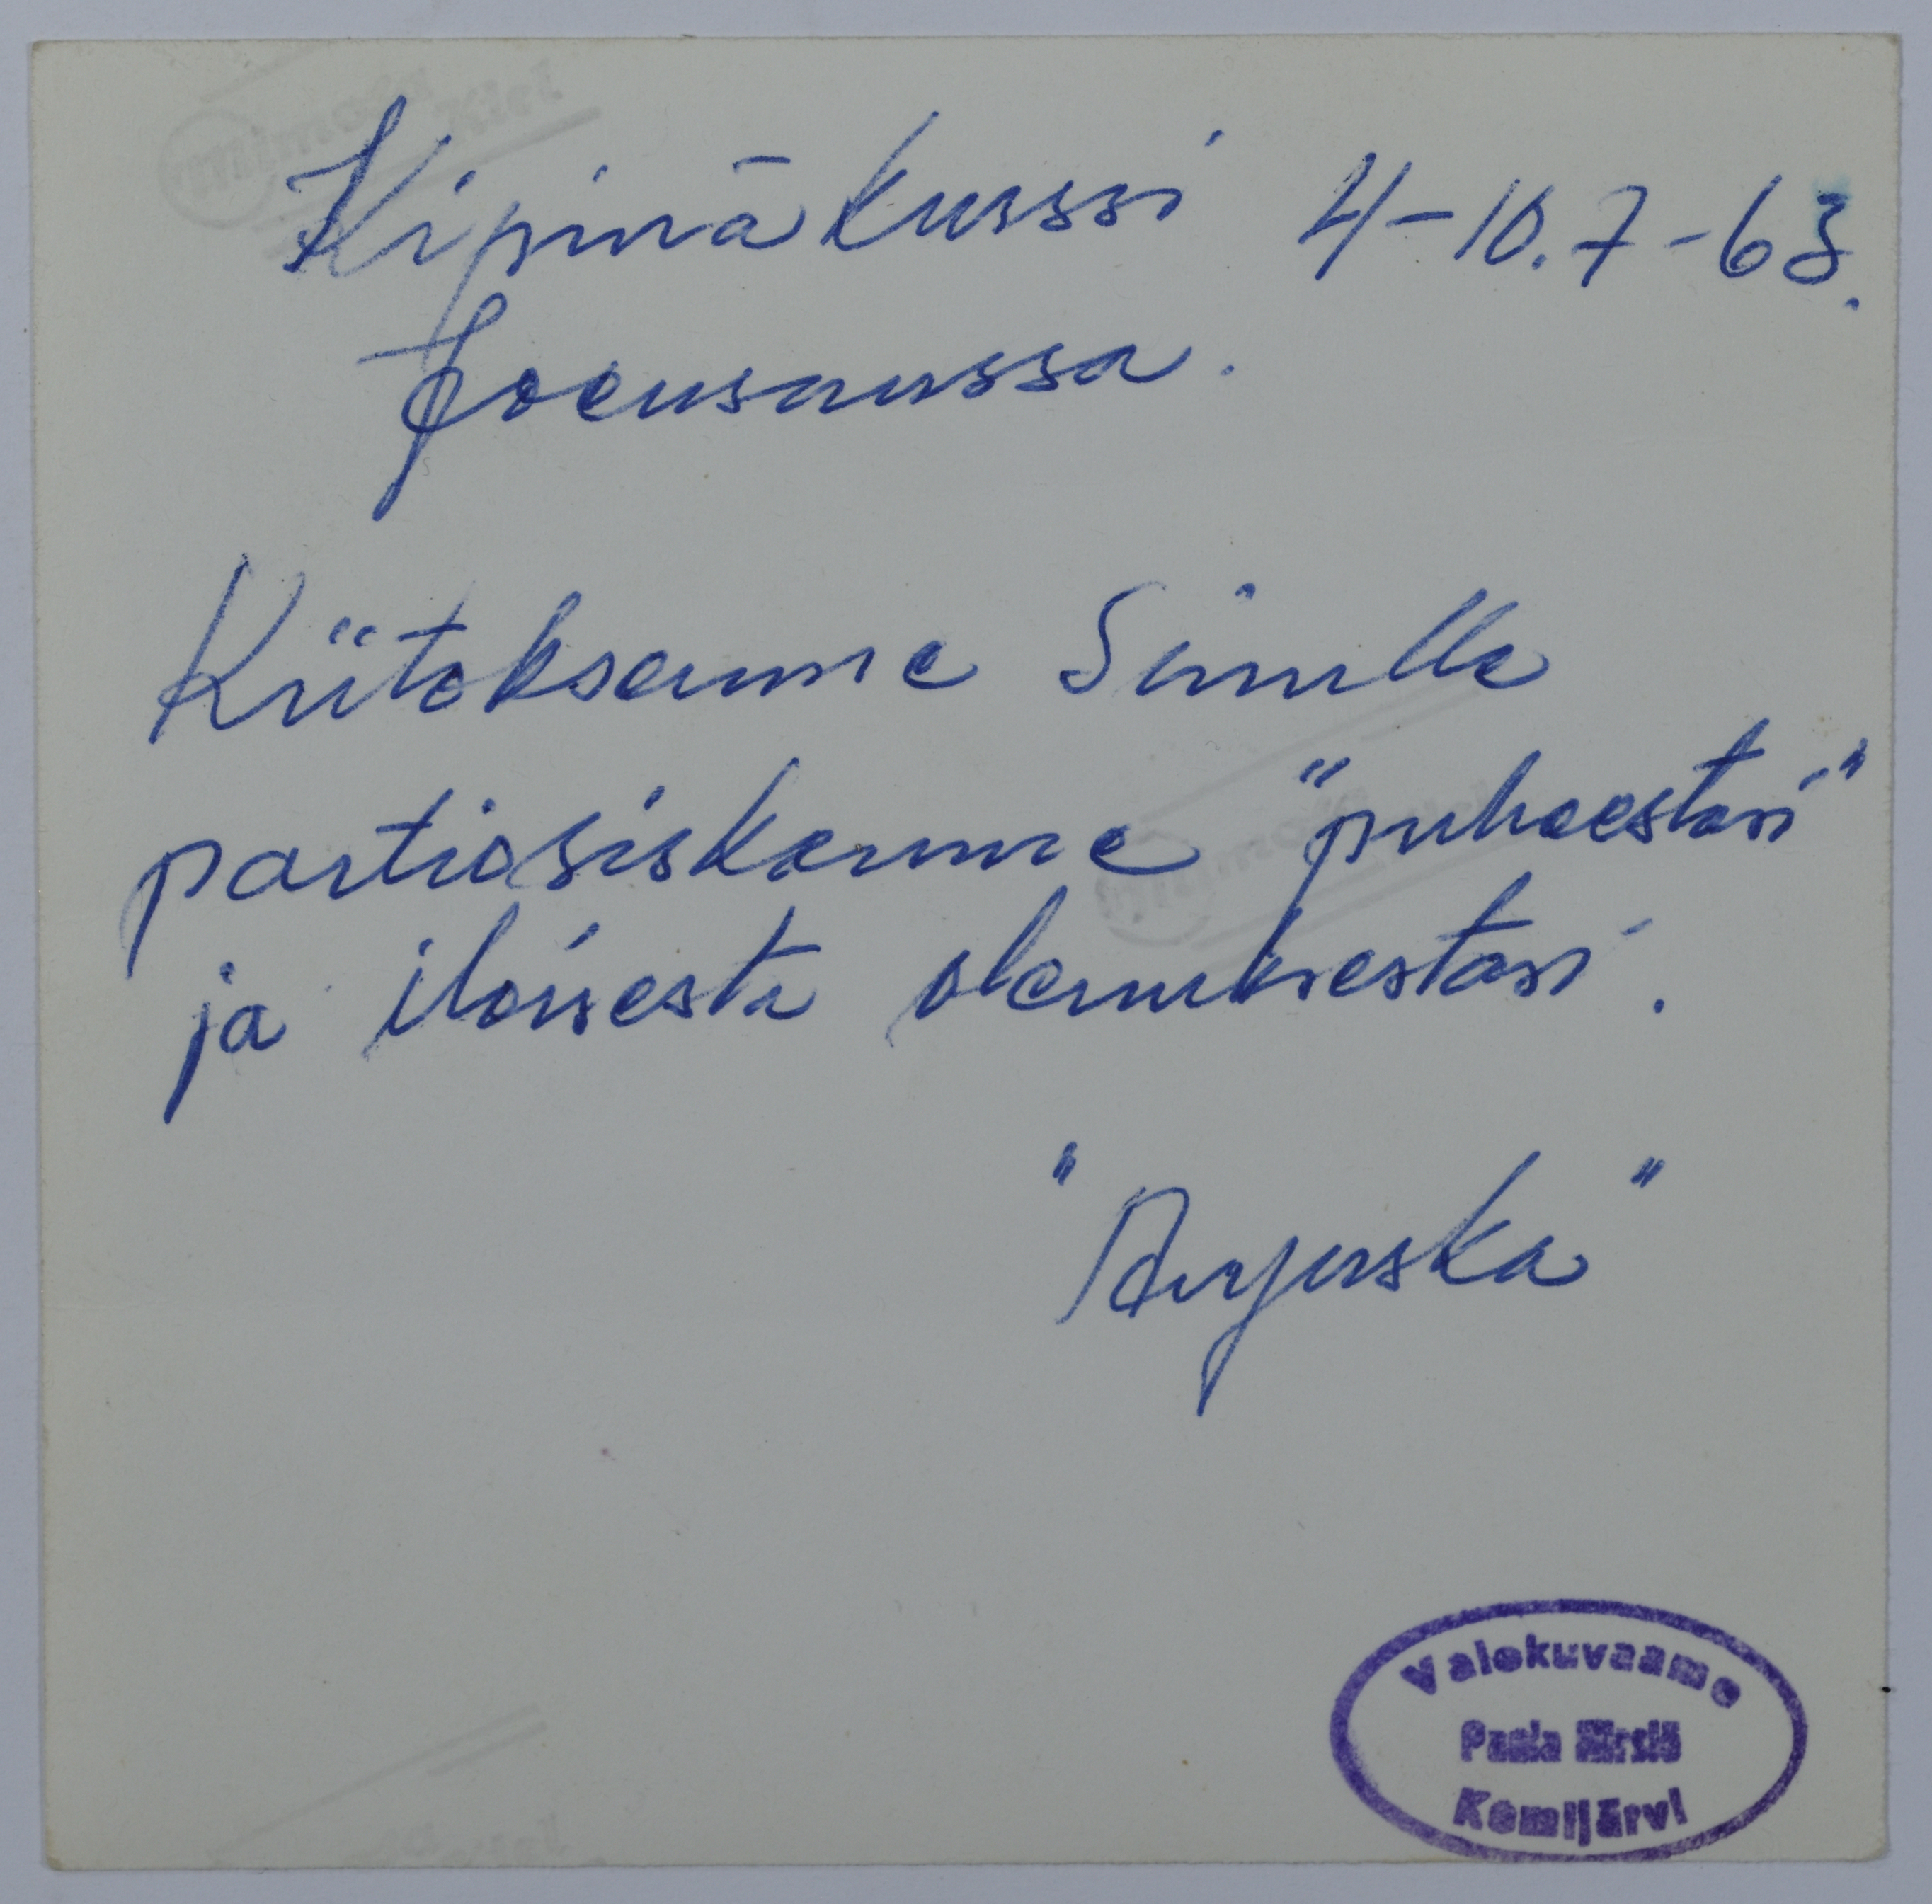 Kipinäkurssi 4-10.7-63.
Joensuussa.
Kiitoksemme Sinulle
partiosiskomme "puheestasi"
ja iloisesta olemuksestasi.
"Arjuska"
Valokuvaamo
Paula
Kemijärvi